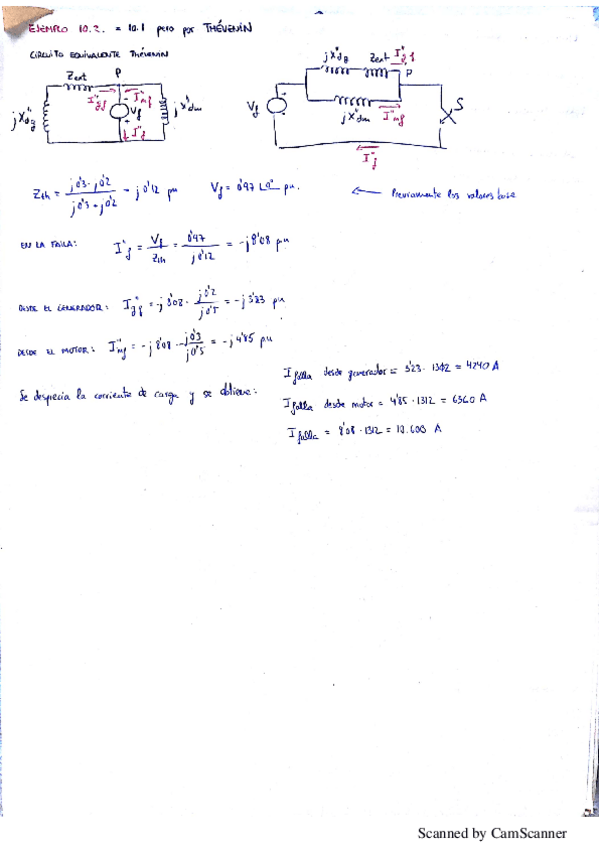 EJEMPLO 10.2. = 10.1 pero por THÉVENIN
CIRCUITO EQUIVALENTE THÉVENIN
Zext P
jX"dg I"gf I"mf Vf jX"dm
I"f
jX"dg Zext I"gf P
Vf jX"dm I"mf S
I"f
Zth = j0'3 · j0'2 / j0'3 + j0'2 = j0'12 pu Vf = 0'97 ∠0° pu. ← Previamente los valores base
EN LA FALLA: I"f = Vf / Zth = 0'97 / j0'12 = -j8'08 pu
DESDE EL GENERADOR: I"gf = -j8'08 · j0'2 / j0'5 = -j3'23 pu
DESDE EL MOTOR: I"mf = -j8'08 · j0'3 / j0'5 = -j4'85 pu
Se desprecia la corriente de carga y se obtiene:
I falla desde generador = 3'23 · 1312 = 4240 A
I falla desde motor = 4'85 · 1312 = 6360 A
I falla = 8'08 · 1312 = 10.600 A
Scanned by CamScanner